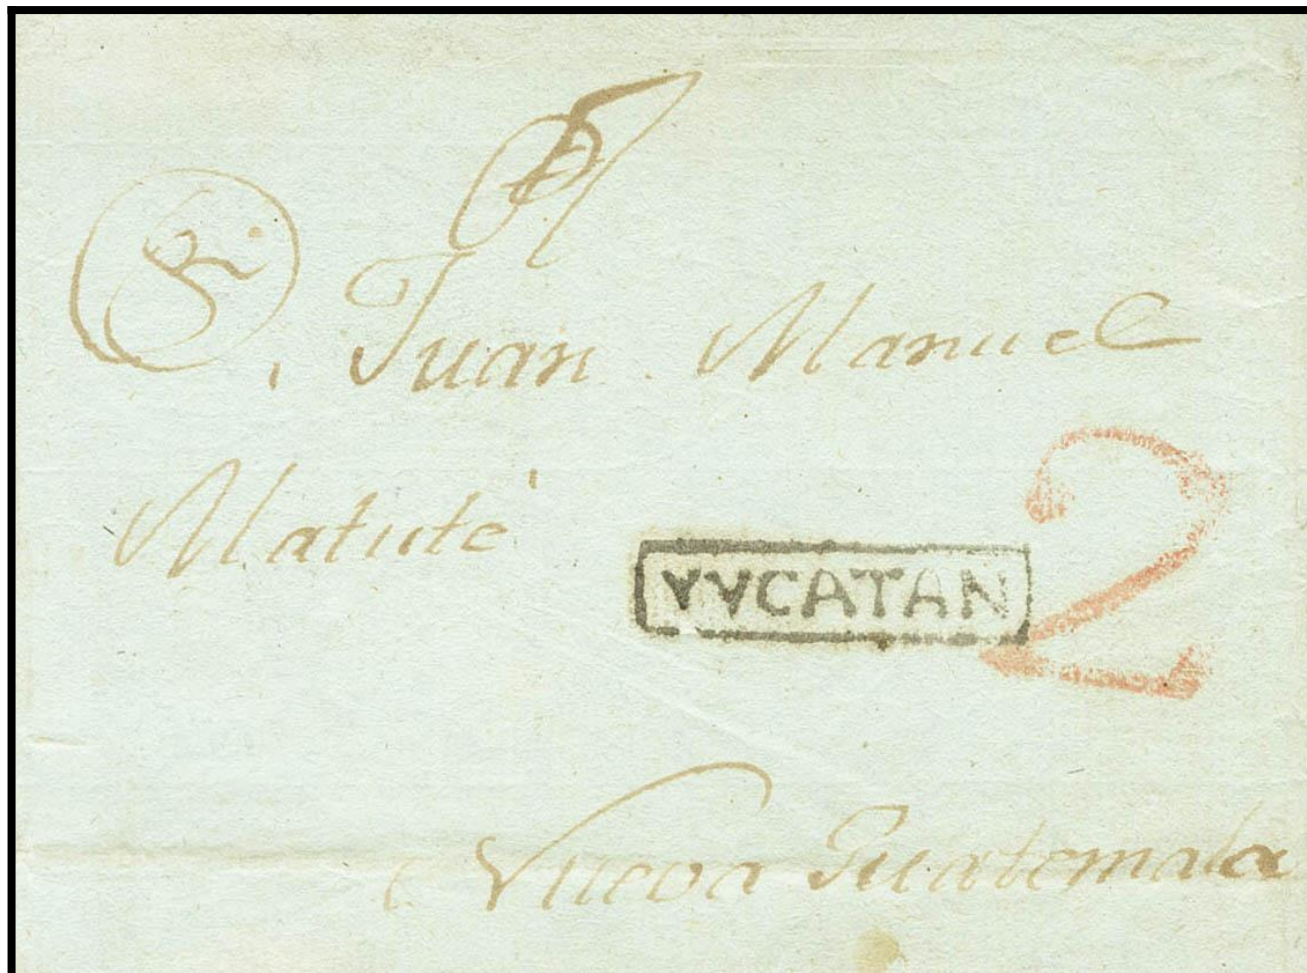 Juan Manuel
Matute
YVCATAN
2
Nueva Guatemala